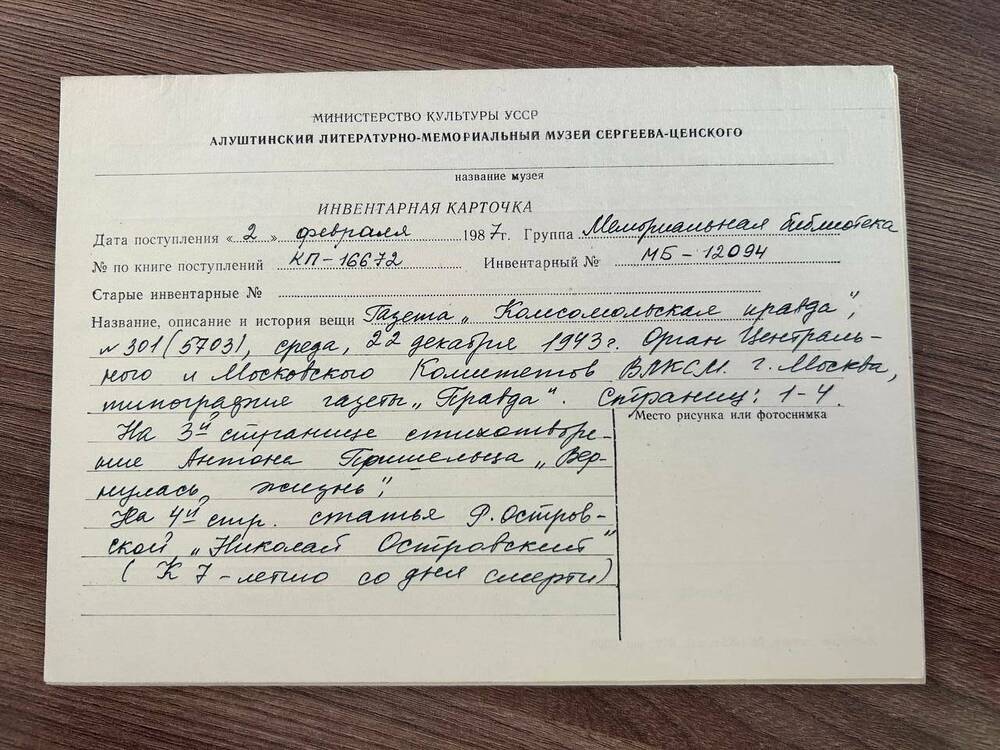 МИНИСТЕРСТВО КУЛЬТУРЫ УССР
АЛУШТИНСКИЙ ЛИТЕРАТУРНО-МЕМОРИАЛЬНЫЙ МУЗЕЙ СЕРГЕЕВА-ЦЕНСКОГО
название музея
ИНВЕНТАРНАЯ КАРТОЧКА
Дата поступления «2» февраля 1987г. Группа Мемориальная библиотека
№ по книге поступлений КП-16672 Инвентарный № МБ-12094
Старые инвентарные №
Название, описание и история вещи Газета „Комсомольская правда",
№301 (5703), среда, 22 декабря 1943г. Орган Централь-
ного и Московского Комитетов ВЛКСМ. г. Москва,
типография газеты „Правда". Страниц: 1-4.
Место рисунка или фотоснимка
На 3й странице стихотворе-
ние Антона Пришельца „Вер-
нулась жизнь";
На 4й стр. статья Р. Остров-
ской „Николай Островский"
(К 7-летию со дня смерти)